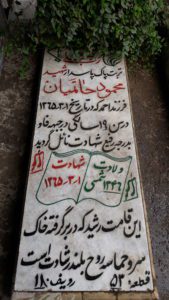 تربت پاک پاسدار شهید
محمود حاتمیان
فرزند احمد که در تاریخ ۱ر۳ر۱۳۶۵
در سن ۱۹ سالگی در جبهه فاو
بدرجه رفیع شهادت نائل گردید
ولادت
۱۳۴۶ شمسی
شهادت
۱ر۳ر۱۳۶۵
این قامت رشید که در بر گرفته خاک
سرو حماسه روح بلند شهادت است
قطعه: ۵۳ ردیف: ۱۸